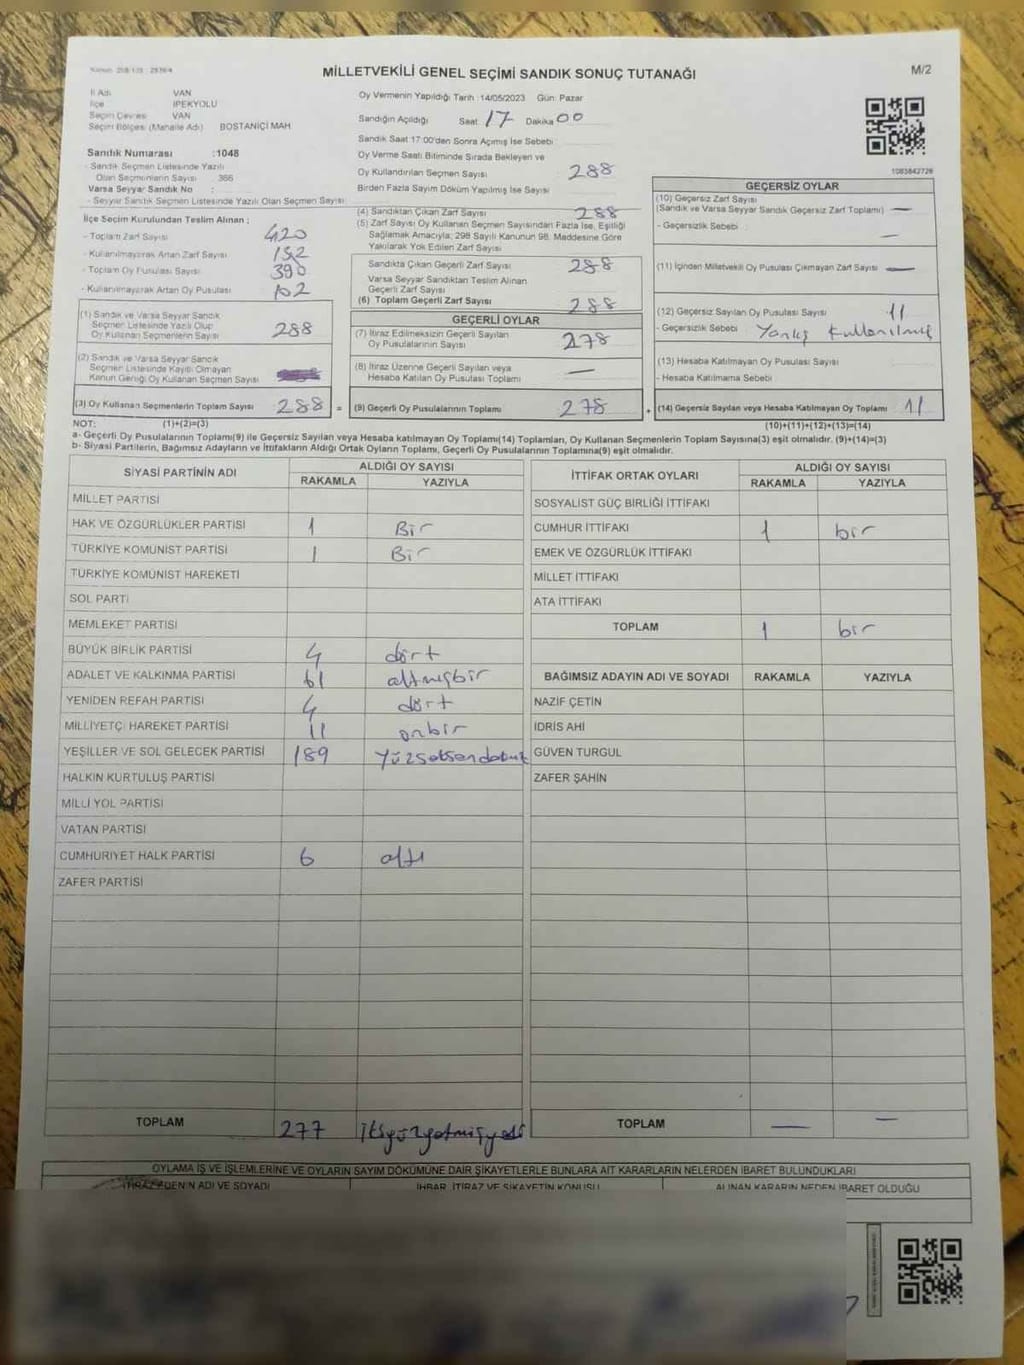 MİLLETVEKİLİ GENEL SEÇİMİ SANDIK SONUÇ TUTANAĞI
M/2
İl Adı VAN
İlçe İPEKYOLU
Seçim Çevresi VAN
Seçim Bölgesi (Mahalle Adı) BOSTANİÇİ MAH.
Sandık Numarası :1048
- Sandık Seçmen Listesinde Yazılı
Olan Seçmenlerin Sayısı 366
Varsa Seyyar Sandık No :
- Seyyar Sandık Seçmen Listesinde Yazılı Olan Seçmen Sayısı
Oy Vermenin Yapıldığı Tarih :14/05/2023 Gün: Pazar
Sandığın Açıldığı Saat 17 Dakika 00
Sandık Saat 17:00'den Sonra Açılmış İse Sebebi
Oy Verme Saati Bitiminde Sırada Bekleyen ve
Oy Kullandırılan Seçmen Sayısı 288
Birden Fazla Sayım Döküm Yapılmış İse Sayısı
1083842726
İlçe Seçim Kurulundan Teslim Alınan :
- Toplam Zarf Sayısı 420
- Kullanılmayarak Artan Zarf Sayısı 132
- Toplam Oy Pusulası Sayısı 390
- Kullanılmayarak Artan Oy Pusulası 102
(1) Sandık ve Varsa Seyyar Sandık
Seçmen Listesinde Yazılı Olup
Oy Kullanan Seçmenlerin Sayısı 288
(2) Sandık ve Varsa Seyyar Sandık
Seçmen Listesinde Kayıtlı Olmayan
Kanun Gereği Oy Kullanan Seçmen Sayısı
(3) Oy Kullanan Seçmenlerin Toplam Sayısı 288 =
(4) Sandıktan Çıkan Zarf Sayısı 288
(5) Zarf Sayısı Oy Kullanan Seçmen Sayısından Fazla İse, Eşitliği
Sağlamak Amacıyla; 298 Sayılı Kanunun 98. Maddesine Göre
Yakılarak Yok Edilen Zarf Sayısı
Sandıkta Çıkan Geçerli Zarf Sayısı 288
Varsa Seyyar Sandıktan Teslim Alınan
Geçerli Zarf Sayısı
(6) Toplam Geçerli Zarf Sayısı 288
GEÇERLİ OYLAR
(7) İtiraz Edilmeksizin Geçerli Sayılan
Oy Pusulalarının Sayısı 278
(8) İtiraz Üzerine Geçerli Sayılan veya
Hesaba Katılan Oy Pusulası Toplamı —
(9) Geçerli Oy Pusulalarının Toplamı 278 +
GEÇERSİZ OYLAR
(10) Geçersiz Zarf Sayısı
(Sandık ve Varsa Seyyar Sandık Geçersiz Zarf Toplamı) —
- Geçersizlik Sebebi —
(11) İçinden Milletvekili Oy Pusulası Çıkmayan Zarf Sayısı —
(12) Geçersiz Sayılan Oy Pusulası Sayısı 11
- Geçersizlik Sebebi Yanlış Kullanılmış
(13) Hesaba Katılmayan Oy Pusulası Sayısı
- Hesaba Katılmama Sebebi
(14) Geçersiz Sayılan veya Hesaba Katılmayan Oy Toplamı 11
NOT: (1)+(2)=(3) (10)+(11)+(12)+(13)=(14)
a- Geçerli Oy Pusulalarının Toplamı(9) ile Geçersiz Sayılan veya Hesaba katılmayan Oy Toplamı(14) Toplamları, Oy Kullanan Seçmenlerin Toplam Sayısına(3) eşit olmalıdır. (9)+(14)=(3)
b- Siyasi Partilerin, Bağımsız Adayların ve İttifakların Aldığı Ortak Oyların Toplamı, Geçerli Oy Pusulalarının Toplamına(9) eşit olmalıdır.
SİYASİ PARTİNİN ADI ALDIĞI OY SAYISI
RAKAMLA YAZIYLA
MİLLET PARTİSİ
HAK VE ÖZGÜRLÜKLER PARTİSİ 1 Bir
TÜRKİYE KOMÜNİST PARTİSİ 1 Bir
TÜRKİYE KOMÜNİST HAREKETİ
SOL PARTİ
MEMLEKET PARTİSİ
BÜYÜK BİRLİK PARTİSİ 4 dört
ADALET VE KALKINMA PARTİSİ 61 altmışbir
YENİDEN REFAH PARTİSİ 4 dört
MİLLİYETÇİ HAREKET PARTİSİ 11 onbir
YEŞİLLER VE SOL GELECEK PARTİSİ 189 Yüzseksendokuz
HALKIN KURTULUŞ PARTİSİ
MİLLİ YOL PARTİSİ
VATAN PARTİSİ
CUMHURİYET HALK PARTİSİ 6 altı
ZAFER PARTİSİ
TOPLAM 277 İkiyüzyetmişyedi
İTTİFAK ORTAK OYLARI ALDIĞI OY SAYISI
RAKAMLA YAZIYLA
SOSYALİST GÜÇ BİRLİĞİ İTTİFAKI
CUMHUR İTTİFAKI 1 bir
EMEK VE ÖZGÜRLÜK İTTİFAKI
MİLLET İTTİFAKI
ATA İTTİFAKI
TOPLAM 1 bir
BAĞIMSIZ ADAYIN ADI VE SOYADI RAKAMLA YAZIYLA
NAZİF ÇETİN
İDRİS AHİ
GÜVEN TURGUL
ZAFER ŞAHİN
TOPLAM — —
OYLAMA İŞ VE İŞLEMLERİNE VE OYLARIN SAYIM DÖKÜMÜNE DAİR ŞİKAYETLERLE BUNLARA AİT KARARLARIN NELERDEN İBARET BULUNDUKLARI
İTİRAZ EDENİN ADI VE SOYADI İHBAR, İTİRAZ VE ŞİKAYETİN KONUSU ALINAN KARARIN NEDEN İBARET OLDUĞU